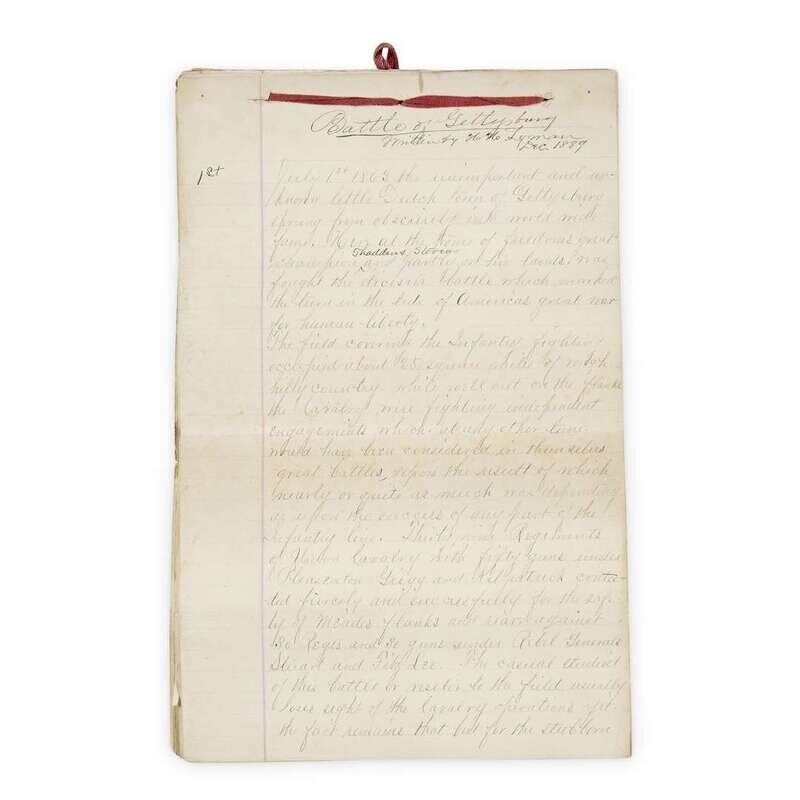 Battle of Gettysburg
Written by H. H. Lyman
Dec. 1889
1st
July 1st 1863 the unimportant and un-
known little Dutch town of Gettysburg
sprung from obscurity into world wide
fame. Here at the home of freedoms great
Thaddeus Stevens
champion and partly on his lands, was
fought the decisive battle which marked
the turn in the tide of Americas great war
for human liberty.
The field covering the Infantry fighting
occupied about 25 square miles of rough
hilly country while well out on the flanks
the Cavalry were fighting independent
engagements which at any other time
would have been considered in themselves
great battles, upon the result of which
nearly or quite as much was depending
as upon the success of any part of the
infantry line. Thirty nine Regiments
of Union Cavalry with fifty guns under
Pleasenton Gregg and Kilpatrick contes-
ted fiercely and successfully for the safe-
ty of Meades flanks and rear against
Regts and 30 guns under Rebel Generals
Stuart and Fitz Lee. The casual student
of this battle or visitor to the field usually
loses sight of the Cavalry operations yet
the fact remains that but for the stubborn